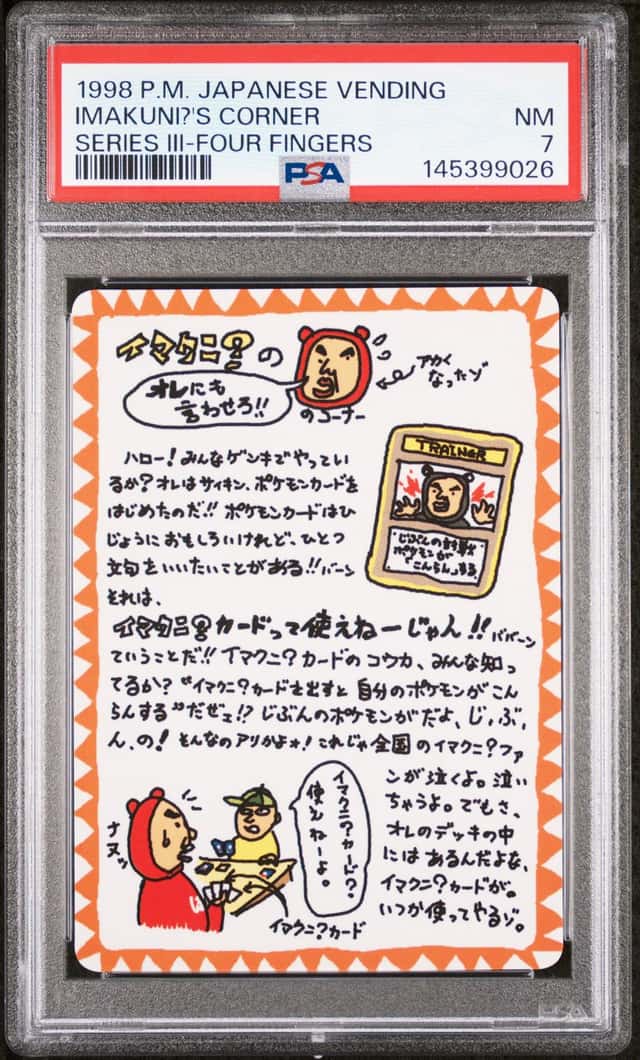 1998 P.M. JAPANESE VENDING
IMAKUNI?'S CORNER NM
SERIES III-FOUR FINGERS 7
PSA 145399026
イマクニ?の
のコーナー
アカく
なったゾ
オレにも
言わせろ!!
TRAINER
"じぶんの対戦
ポケモンが
「こんらん」する。
ハロー!みんなゲンキでやってい
るか?オレはサイキン、ポケモンカードを
はじめたのだ!!ポケモンカードはひ
じょうにおもしろいけれど、ひとつ
文句をいいたいことがある!!バーン
それは、
イマクニ?カードって使えねーじゃん!!ババーン
ていうことだ!!イマクニ?カードのコウカ、みんな知っ
てるか?"イマクニ?カードを出すと自分のポケモンがこん
らんする"だぜェ!?じぶんのポケモンがだよ、じ、ぶ、
ん、の!そんなのアリかよォ!これじゃ全国のイマクニ?ファ
ンが泣くよ。泣い
ちゃうよ。でもさ、
オレのデッキの中
にはあるんだよな、
イマクニ?カードが。
いつか使ってやるゾ。
イマクニ?カード?
使えねーよ。
ナヌッ
イマクニ?カード
PSA